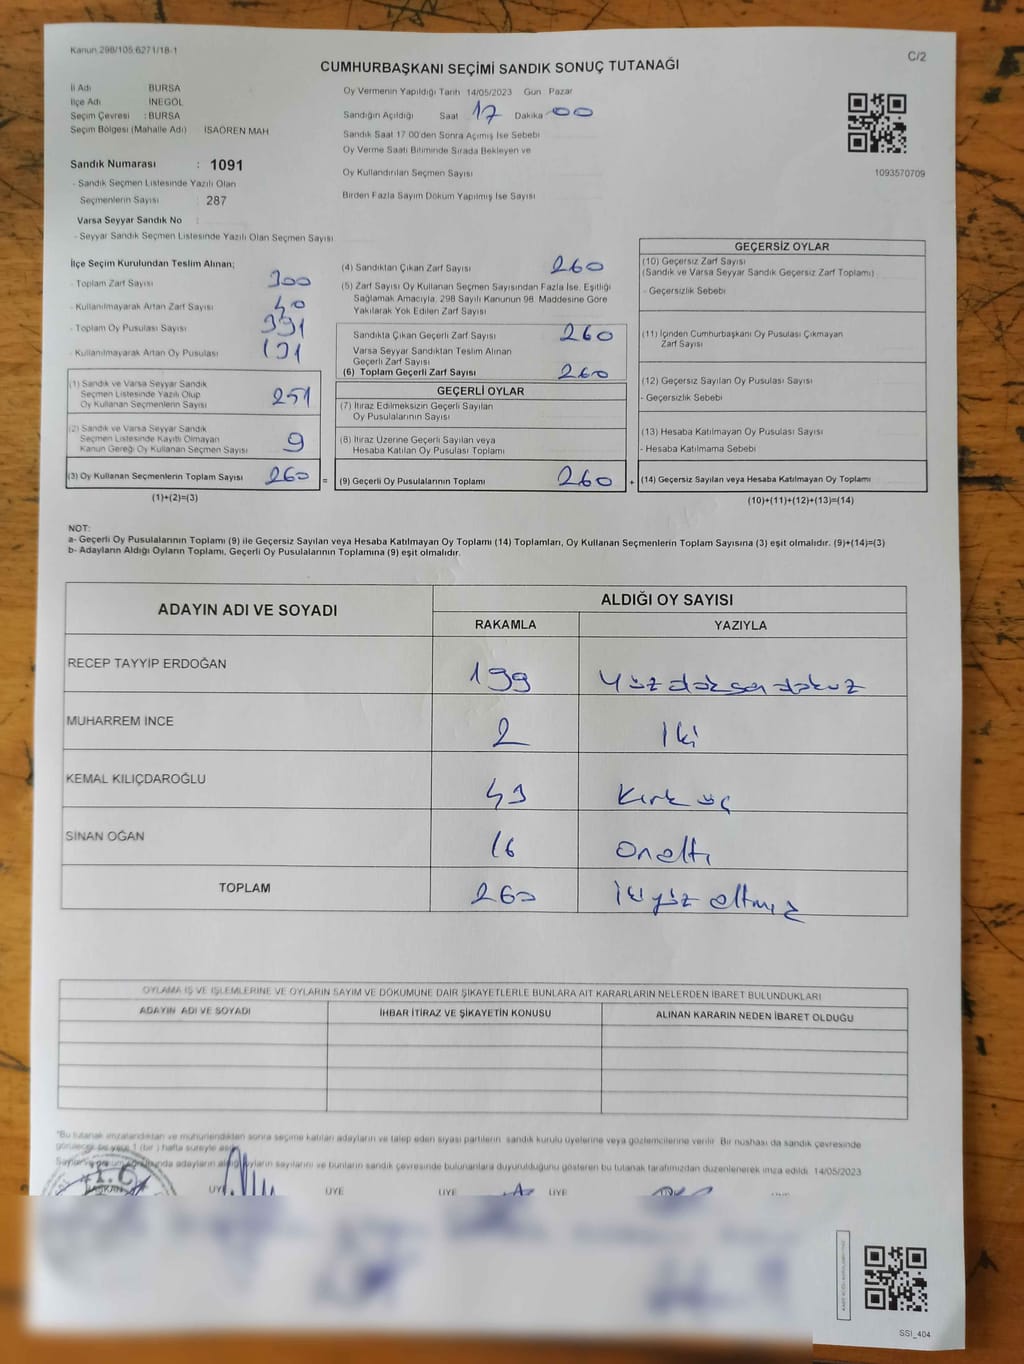 Kanun 298/105 6271/18-1
C/2
CUMHURBAŞKANI SEÇİMİ SANDIK SONUÇ TUTANAĞI
İl Adı BURSA
İlçe Adı İNEGÖL
Seçim Çevresi : BURSA
Seçim Bölgesi (Mahalle Adı) İSAÖREN MAH
Sandık Numarası : 1091
- Sandık Seçmen Listesinde Yazılı Olan
Seçmenlerin Sayısı : 287
Varsa Seyyar Sandık No :
- Seyyar Sandık Seçmen Listesinde Yazılı Olan Seçmen Sayısı
Oy Vermenin Yapıldığı Tarih 14/05/2023 Gün Pazar
Sandığın Açıldığı Saat 17 Dakika 00
Sandık Saat 17 00'den Sonra Açımış İse Sebebi
Oy Verme Saati Bitiminde Sırada Bekleyen ve
Oy Kullandırılan Seçmen Sayısı
Birden Fazla Sayım Döküm Yapılmış İse Sayısı
1093570709
İlçe Seçim Kurulundan Teslim Alınan;
- Toplam Zarf Sayısı 300
- Kullanılmayarak Artan Zarf Sayısı 40
- Toplam Oy Pusulası Sayısı 391
- Kullanılmayarak Artan Oy Pusulası 131
(1) Sandık ve Varsa Seyyar Sandık
Seçmen Listesinde Yazılı Olup
Oy Kullanan Seçmenlerin Sayısı 251
(2) Sandık ve Varsa Seyyar Sandık
Seçmen Listesinde Kayıtlı Olmayan
Kanun Gereği Oy Kullanan Seçmen Sayısı 9
(3) Oy Kullanan Seçmenlerin Toplam Sayısı 260 =
(1)+(2)=(3)
(4) Sandıktan Çıkan Zarf Sayısı 260
(5) Zarf Sayısı Oy Kullanan Seçmen Sayısından Fazla İse, Eşitliği
Sağlamak Amacıyla, 298 Sayılı Kanunun 98. Maddesine Göre
Yakılarak Yok Edilen Zarf Sayısı
Sandıkta Çıkan Geçerli Zarf Sayısı 260
Varsa Seyyar Sandıktan Teslim Alınan
Geçerli Zarf Sayısı
(6) Toplam Geçerli Zarf Sayısı 260
GEÇERLİ OYLAR
(7) İtiraz Edilmeksizin Geçerli Sayılan
Oy Pusulalarının Sayısı
(8) İtiraz Üzerine Geçerli Sayılan veya
Hesaba Katılan Oy Pusulası Toplamı
(9) Geçerli Oy Pusulalarının Toplamı 260 +
GEÇERSİZ OYLAR
(10) Geçersiz Zarf Sayısı
(Sandık ve Varsa Seyyar Sandık Geçersiz Zarf Toplamı)
- Geçersizlik Sebebi
(11) İçinden Cumhurbaşkanı Oy Pusulası Çıkmayan
Zarf Sayısı
(12) Geçersiz Sayılan Oy Pusulası Sayısı
- Geçersizlik Sebebi
(13) Hesaba Katılmayan Oy Pusulası Sayısı
- Hesaba Katılmama Sebebi
(14) Geçersiz Sayılan veya Hesaba Katılmayan Oy Toplamı
(10)+(11)+(12)+(13)=(14)
NOT:
a- Geçerli Oy Pusulalarının Toplamı (9) ile Geçersiz Sayılan veya Hesaba Katılmayan Oy Toplamı (14) Toplamları, Oy Kullanan Seçmenlerin Toplam Sayısına (3) eşit olmalıdır. (9)+(14)=(3)
b- Adayların Aldığı Oyların Toplamı, Geçerli Oy Pusulalarının Toplamına (9) eşit olmalıdır.
ADAYIN ADI VE SOYADI ALDIĞI OY SAYISI
RAKAMLA YAZIYLA
RECEP TAYYİP ERDOĞAN 199 Yüzdoksandokuz
MUHARREM İNCE 2 İki
KEMAL KILIÇDAROĞLU 43 Kırk üç
SİNAN OĞAN 16 Onaltı
TOPLAM 260 İkiyüz altmış
OYLAMA İŞ VE İŞLEMLERİNE VE OYLARIN SAYIM VE DÖKÜMÜNE DAİR ŞİKAYETLERLE BUNLARA AİT KARARLARIN NELERDEN İBARET BULUNDUKLARI
ADAYIN ADI VE SOYADI İHBAR İTİRAZ VE ŞİKAYETİN KONUSU ALINAN KARARIN NEDEN İBARET OLDUĞU
"Bu tutanak imzalandıktan ve mühürlendikten sonra seçime katılan adayların ve talep eden siyasi partilerin sandık kurulu üyelerine veya gözlemcilerine verilir. Bir nüshası da sandık çevresinde
görülecek bir yere 1 (bir) hafta süreyle asılır
adayların aldığı oyların sayılarını ve bunların sandık çevresinde bulunanlara duyurulduğunu gösteren bu tutanak tarafımızdan düzenlenerek imza edildi. 14/05/2023
BAŞKAN ÜYE ÜYE ÜYE ÜYE
SSI_404